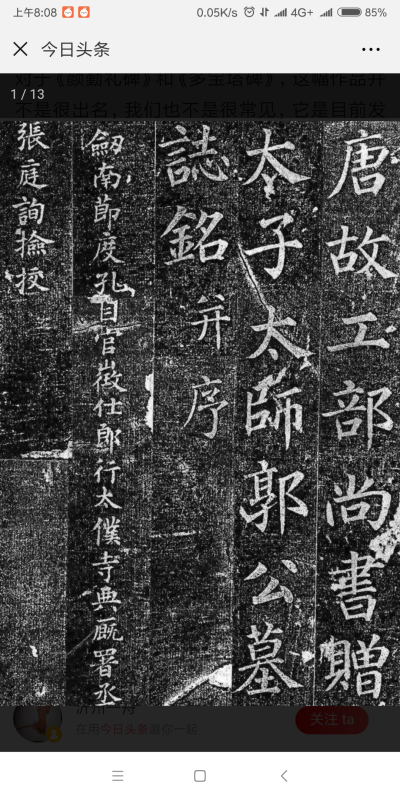 上午8:08
0.05K/s
4G+
85%
今日头条
对于《颜勤礼碑》和《多宝塔碑》，这幅作品并
不是很出名，我们也不是很常见，它是目前发
1 / 13
唐故工部尚書贈
太子太師郭公墓
誌銘并序
劒南節度孔目官徵仕郎行太僕寺典廄署丞
張庭詢撿挍
在用今日头条
你一起
关注 ta